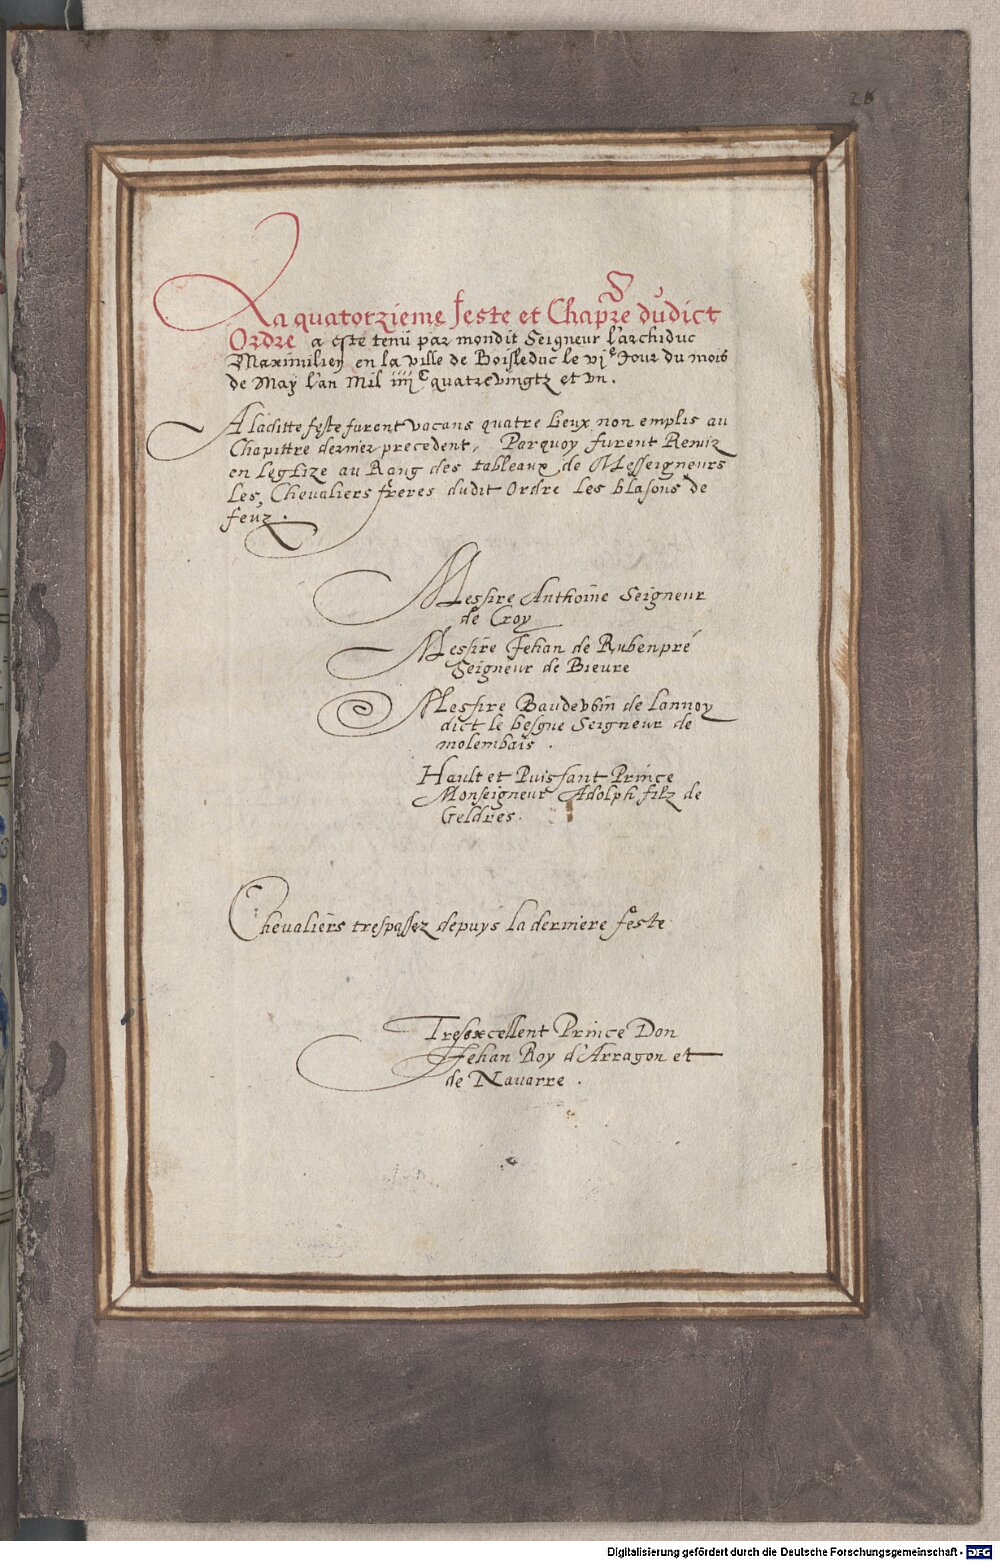 28
La quatorzieme feste et Chapre dudict
Ordre a este tenu par mondit Seigneur l'archiduc
Maximilien en la ville de Boisleduc le vje Jour du mois
de May l'an Mil iiijc quatrevingtz et vn.
A laditte feste furent vacans quatre lieux non emplis au
Chapittre dernier precedent, Parquoy furent Remiz
en leglize au Rang des tableaux de Messeigneurs
les Chevaliers freres dudit Ordre les blasons de
feuz.
Messire Anthoine Seigneur
de Croy
Messire Jehan de Rubenpré
Seigneur de Bieure
Messire Baudewin de lannoy
dict le besgue Seigneur de
molembais.
Hault et Puissant Prince
Monseigneur Adolph filz de
Geldres.
Chevaliers trespassez depuys la derniere feste
Tresexcellent Prince Don
Jehan Roy d'Arragon et
de Navarre.
Digitalisierung gefördert durch die Deutsche Forschungsgemeinschaft - DFG